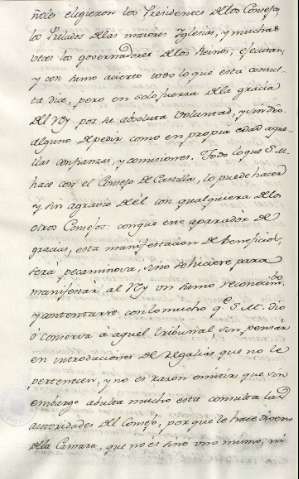 ñole eligieron los Presidentes de los Consejos,
los Prelados de las maiores Iglesias, y muchas
veces los governadores de los Reinos, ejecutan,
y con sumo acierto todo lo que esta consul-
ta dice, pero en solo fuerza de la gracia
del Rey por su absoluta voluntad, y sin dro.
alguno de pedir como en propiedad aque-
llas confianzas, y comisiones. Todo lo que S. M.
hace con el Consejo de Castilla, lo puede hacer
y sin agravio de él con qualquiera de los
otros Consejos: conque ese aparador de
gracias, esta manifestacion de beneficios,
será pecaminosa, sino se hiciere para
manifestar al Rey un sumo reconocimto.
y contentarse con lo mucho qe. S. M. dio
ó conserva á aquel tribunal sin pensar
en introducciones de regalias que no le
pertenecen, y no es razon omitir que sin
embargo abulta mucho esta consulta las
autoridades del Consejo, porque lo hace diverso
de la Camara, que no es sino uno mismo, ni